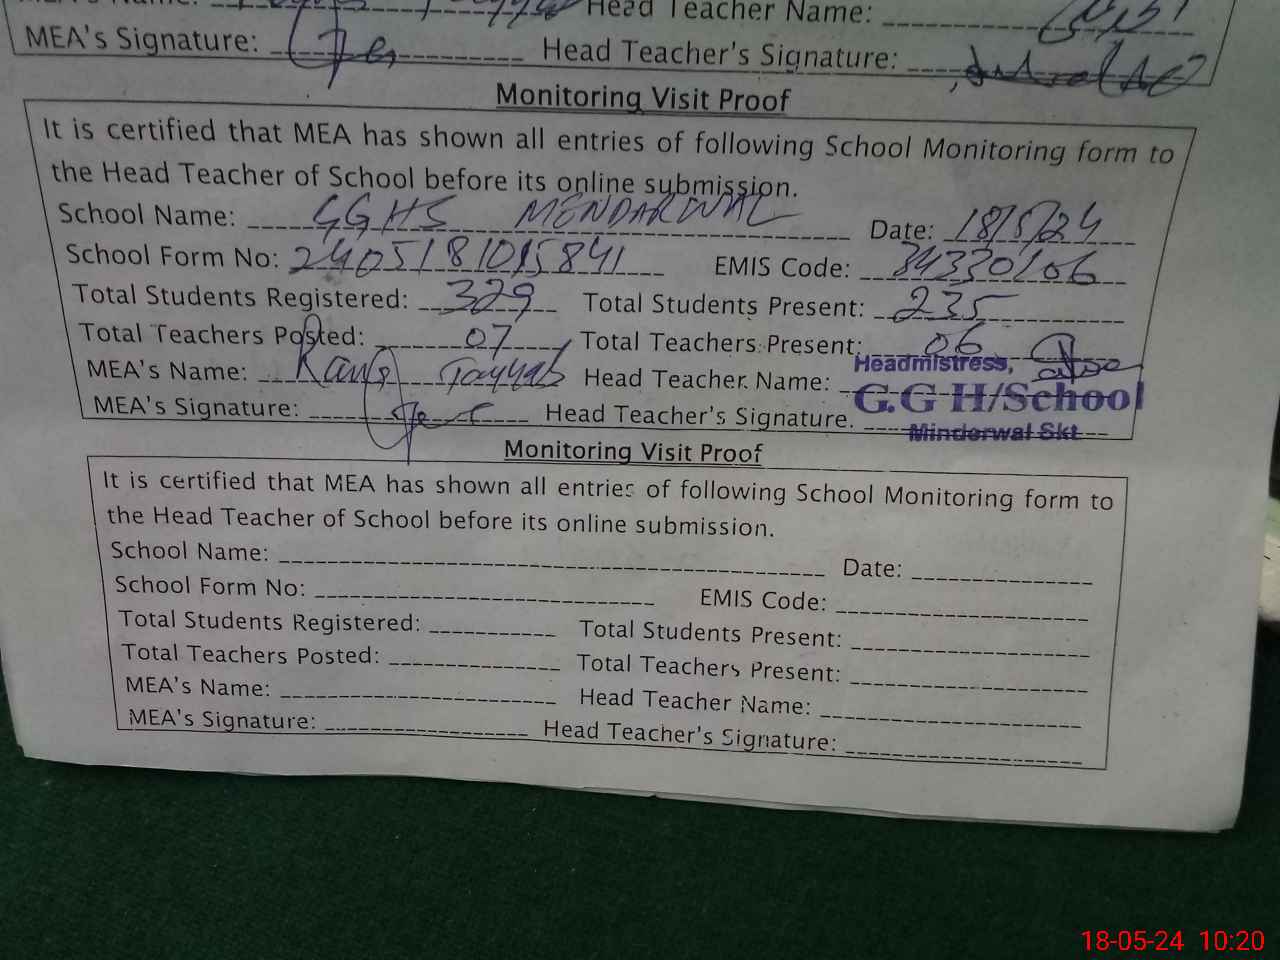 Head Teacher Name:
MEA's Signature: Head Teacher's Signature:
Monitoring Visit Proof
It is certified that MEA has shown all entries of following School Monitoring form to
the Head Teacher of School before its online submission.
School Name: GGHS MENDARWAL Date: 18/5/24
School Form No: 2405181015841 EMIS Code: 34330106
Total Students Registered: 329 Total Students Present: 235
Total Teachers Posted: 07 Total Teachers Present: 06
MEA's Name: Tayyab Head Teacher Name:
MEA's Signature: Head Teacher's Signature.
Headmistress,
G.G H/School
Minderwal Skt
Monitoring Visit Proof
It is certified that MEA has shown all entries of following School Monitoring form to
the Head Teacher of School before its online submission.
School Name: Date:
School Form No: EMIS Code:
Total Students Registered: Total Students Present:
Total Teachers Posted: Total Teachers Present:
MEA's Name: Head Teacher Name:
MEA's Signature: Head Teacher's Signature:
18-05-24 10:20